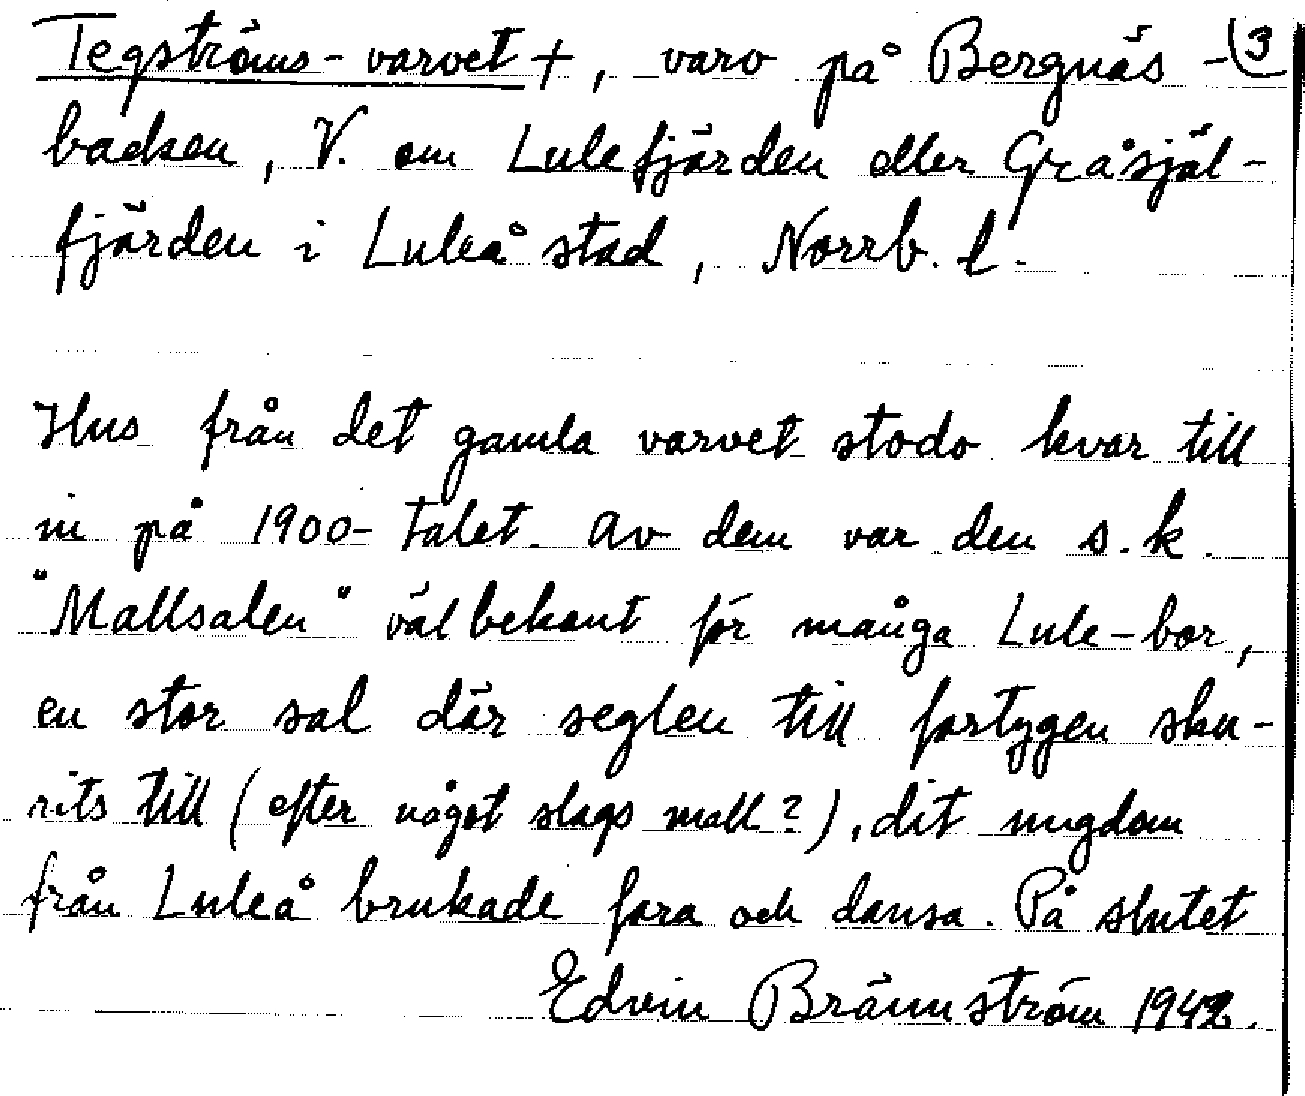 Tegströms-varvet +, varv på Bergnäs- 3
backen, V. om Lulefjärden eller Gråsjäl-
fjärden i Luleå stad, Norrb. l.
Hus från det gamla varvet stodo kvar till
in på 1900-talet. Av dem var den s.k.
"Mallsalen" välbekant för många Lule-bor,
en stor sal där seglen till fartygen sku-
rits till (efter något slags mall?), dit ungdom
från Luleå brukade fara och dansa. På slutet
Edvin Brännström 1942.